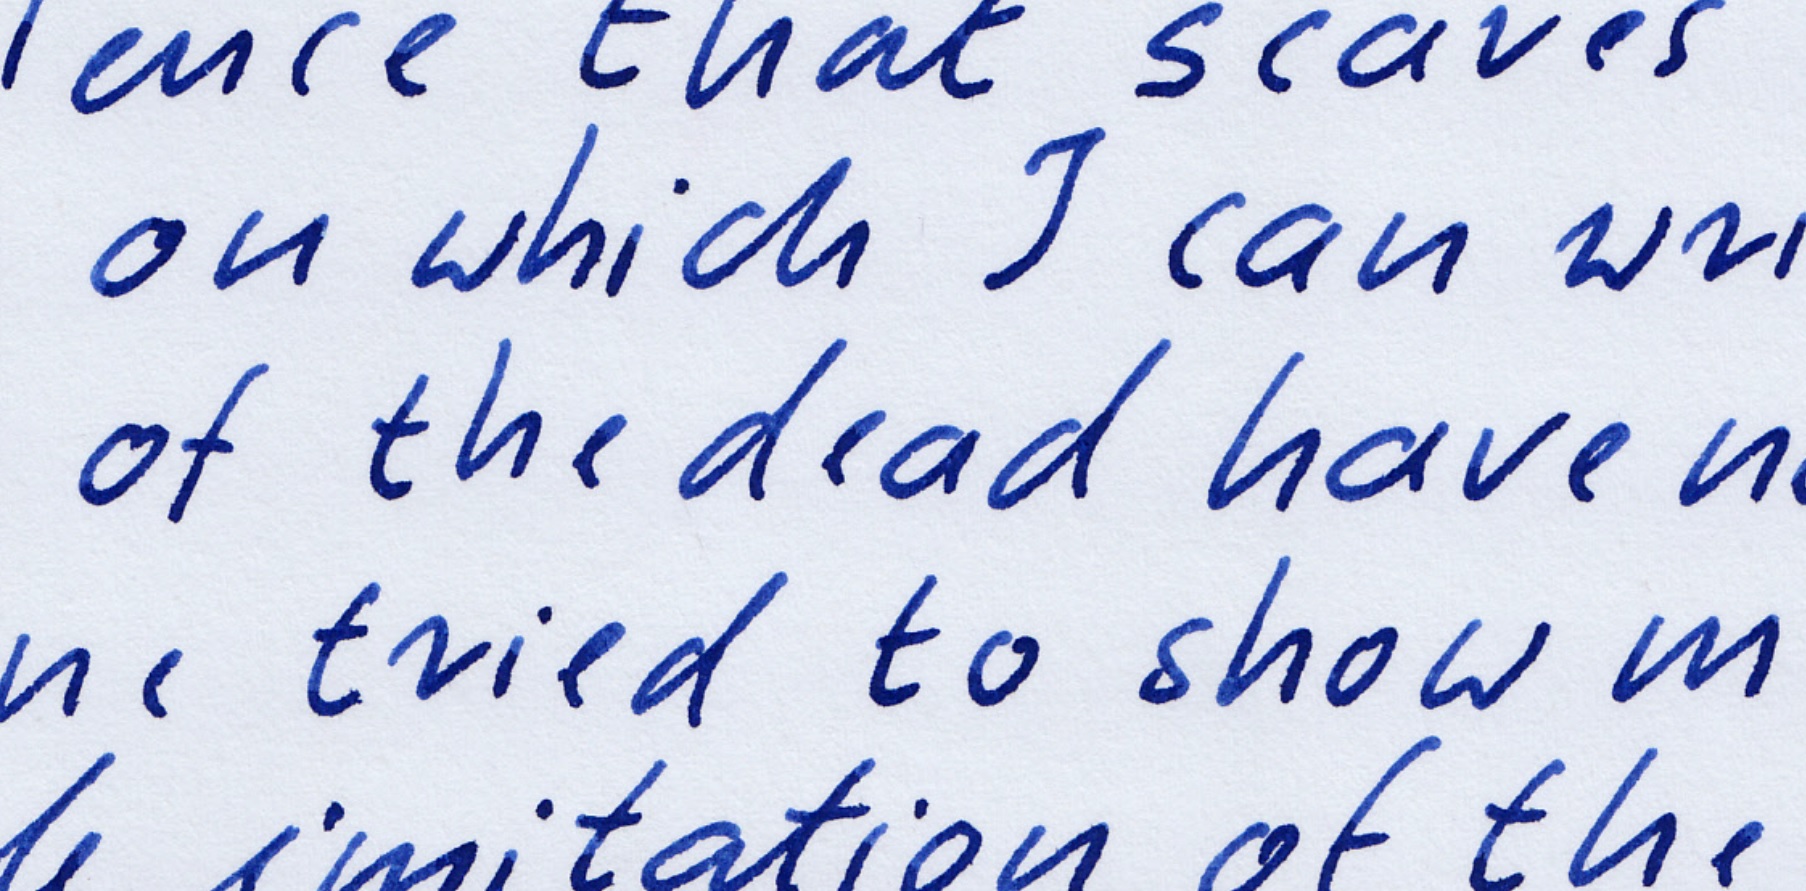 ence that scares
on which I can wri
of the dead have n
ne tried to show m
imitation of the